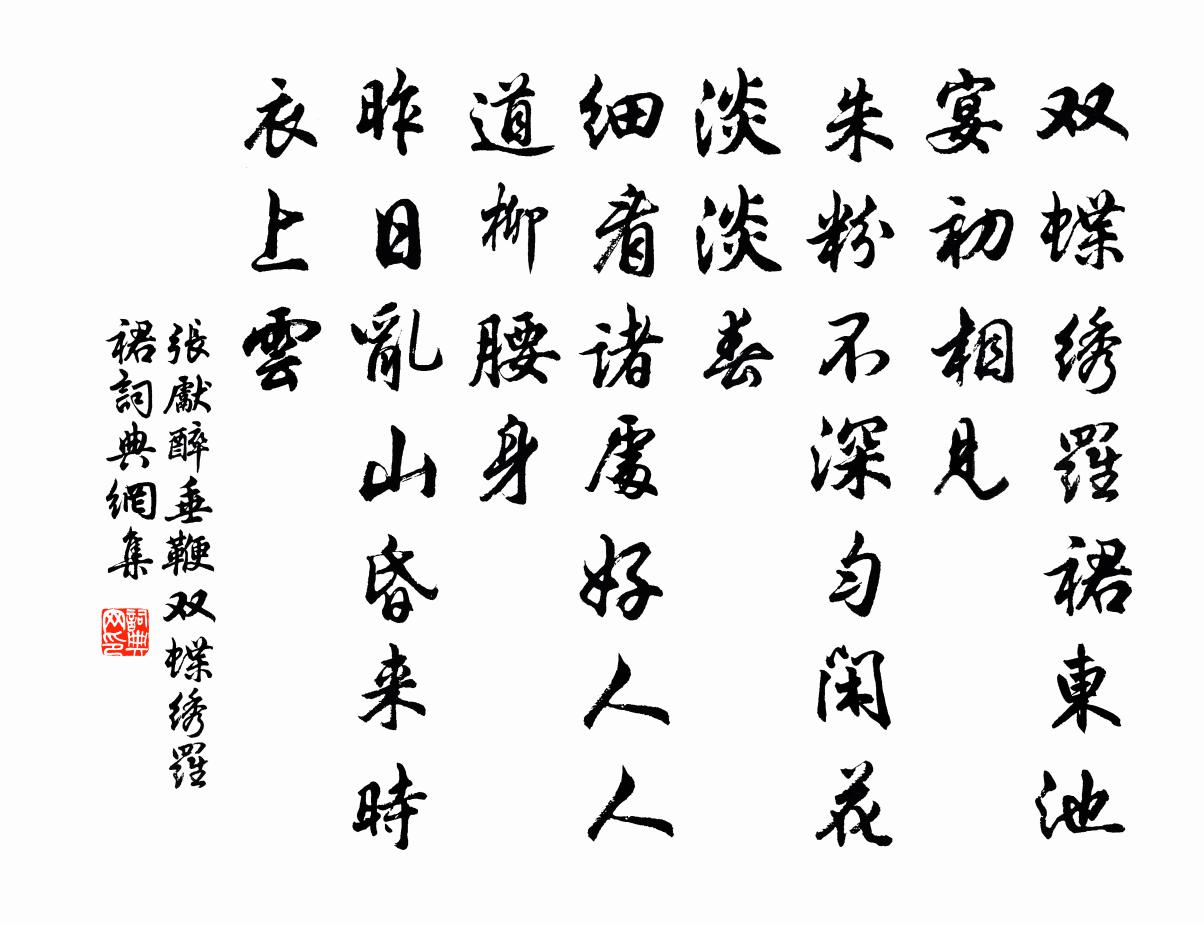 双蝶绣羅裙東池
宴初相見
朱粉不深匀闲花
淡淡春
细看诸處好人人
道柳腰身
昨日亂山昏来時
衣上雲
張獻醉垂鞭双蝶绣羅
裙詞典網集
詞典
网印